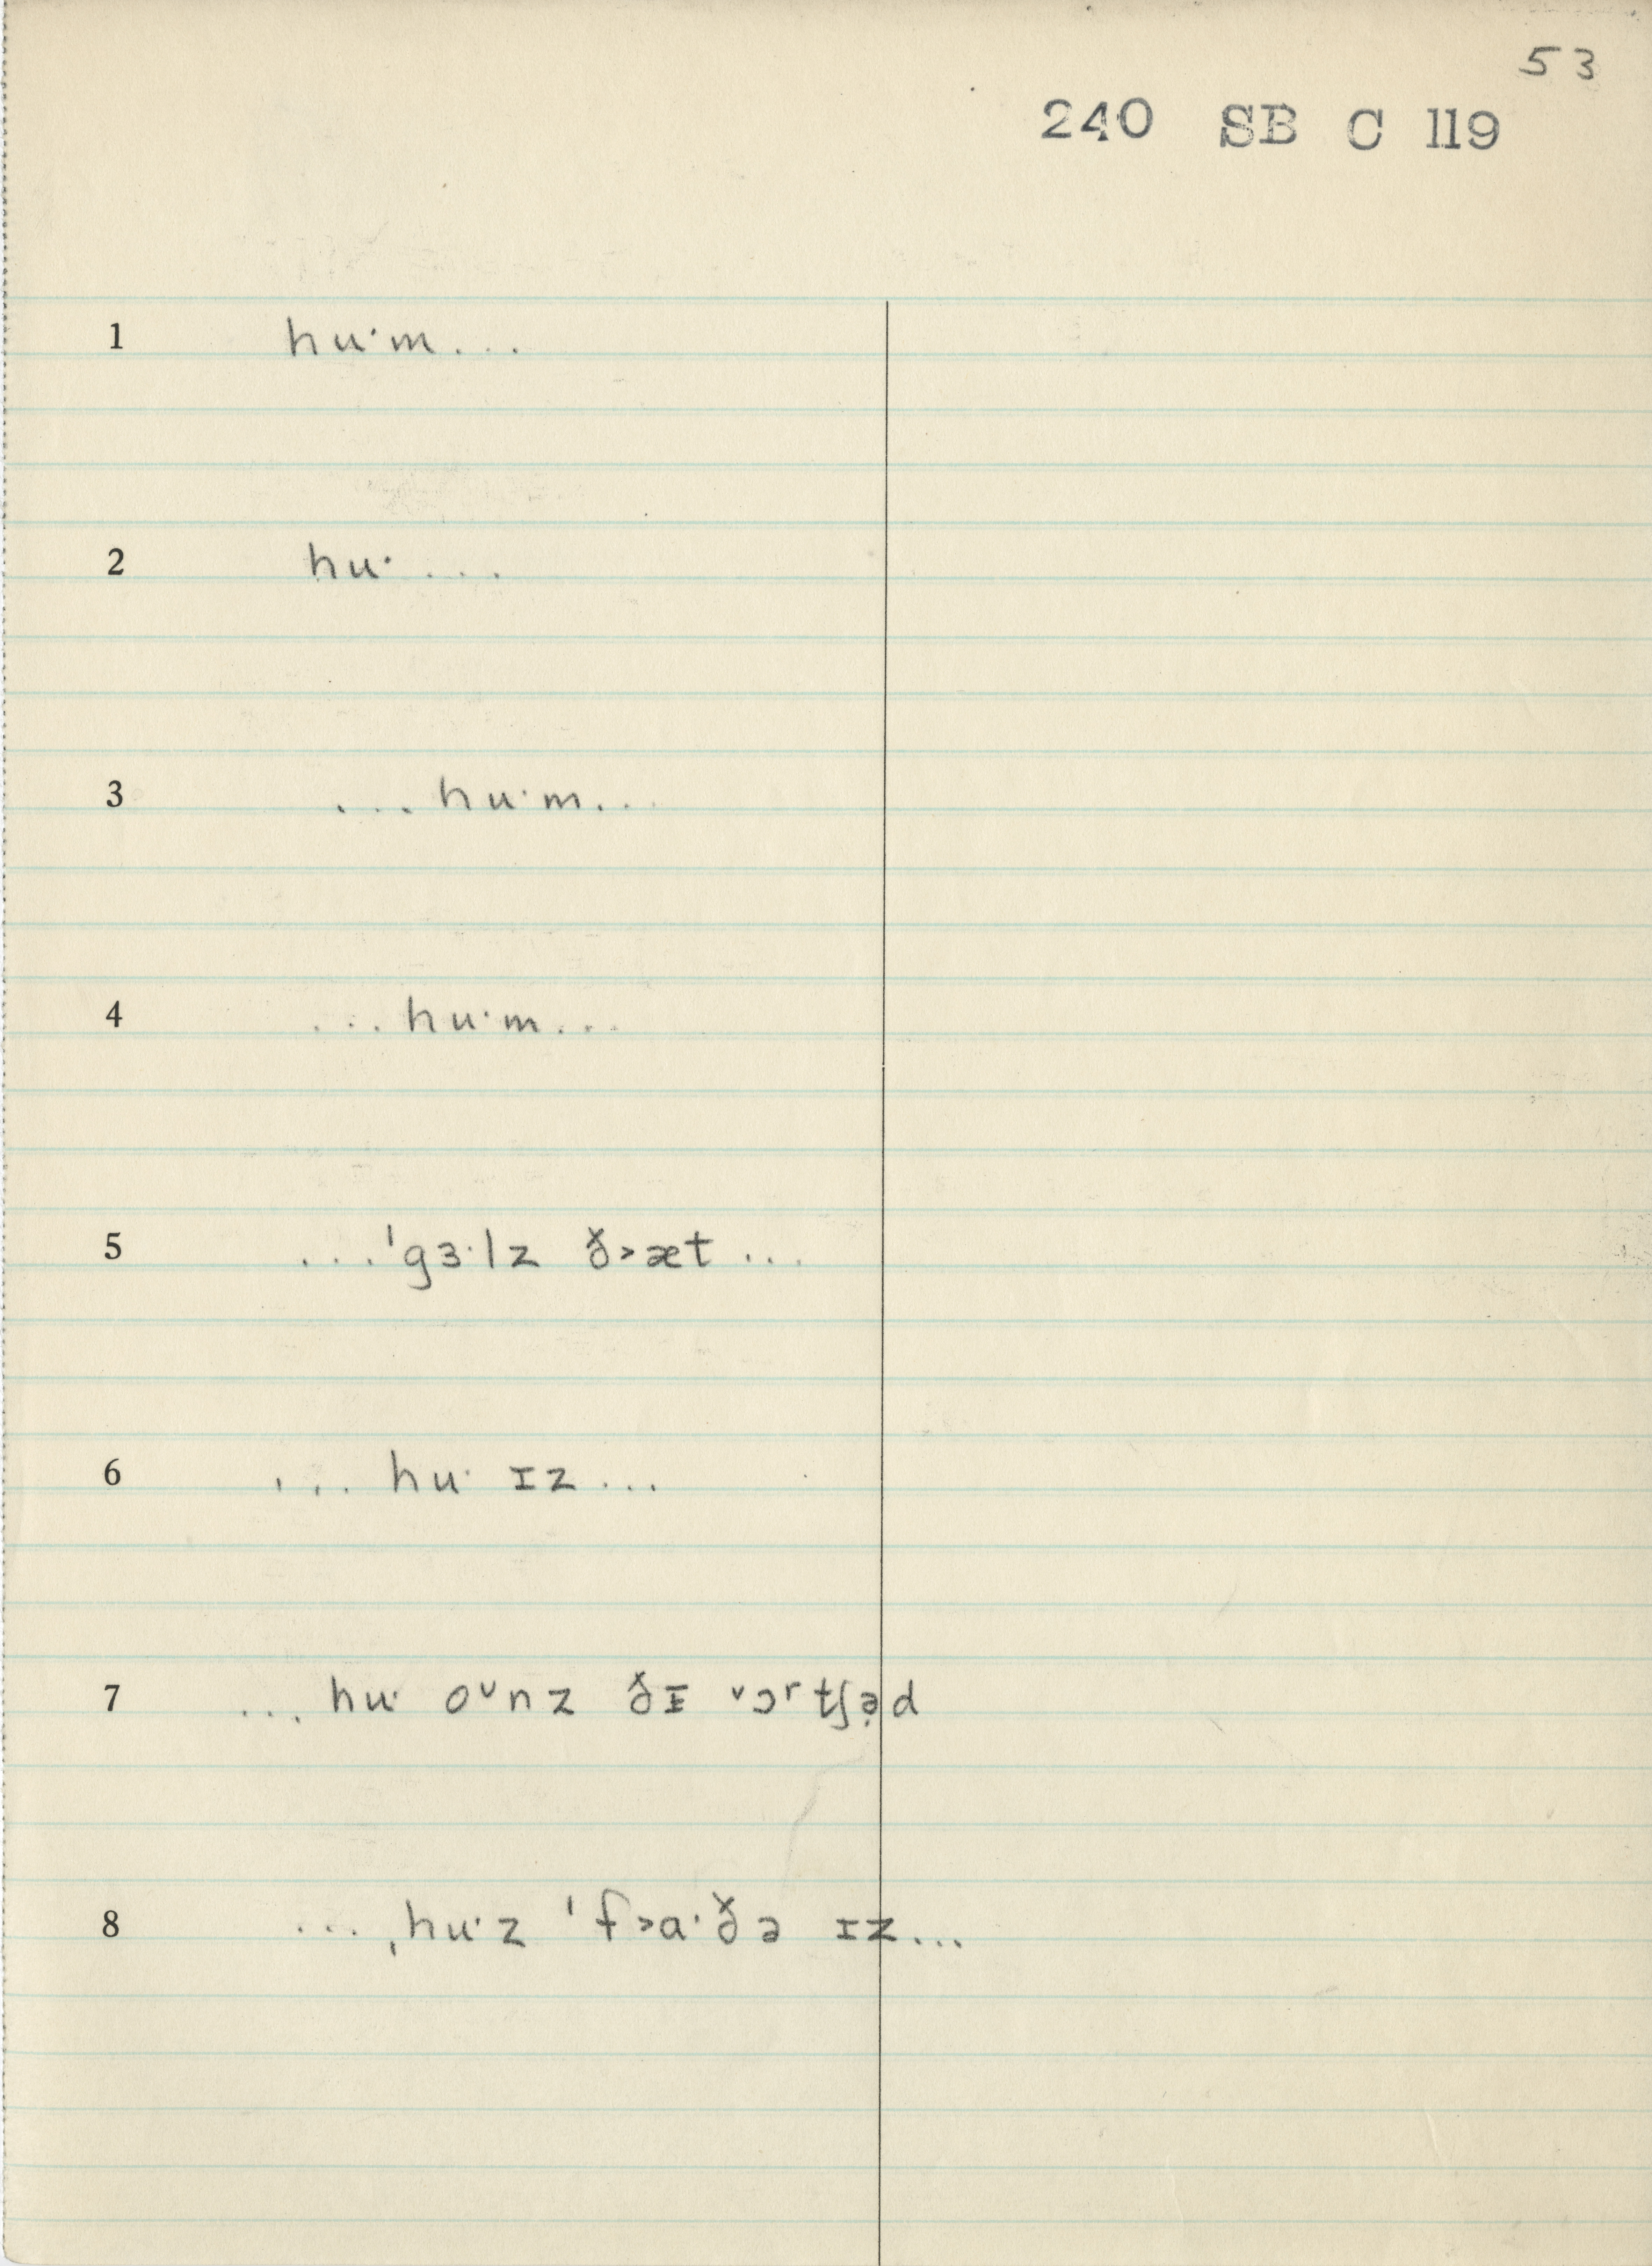 53
240 SB C 119
1 huˑm...
2 huˑ ...
3 ...huˑm...
4 ...huˑm...
5 ...ˈgɜˑlz ð˃æt ...
6 ... huˑ ɪz ...
7 ... huˑ oᵛnz ðᵻ ˅ɔʳtʃə̣d
8 ... ˌhuˑz ˈf˃aˑðə ɪz...